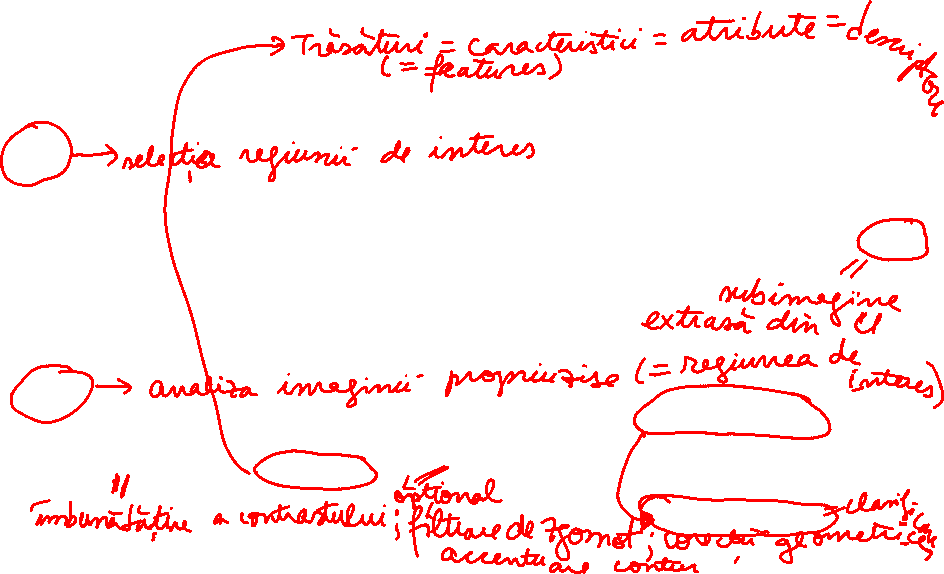 Trăsături = caracteristici = atribute = descriptori
(= features)
selecția regiunii de interes
subimagine
extrasă din U
analiza imaginii propriuzise (= regiunea de interes)
îmbunătățire a contrastului; opțional
filtrare de zgomot; corecții geometrice
accentuare contur
clasificare